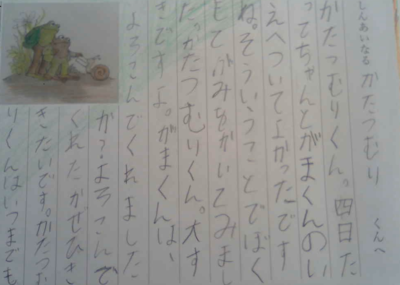 しんあいなる かたつむり くんへ
かたつむりくん。四日た
ってちゃんとがまくんのい
えへついてよかったです
ね。そういうことでぼく
もてがみをかいてみまし
た。かたつむりくん。大す
きですよ。がまくんは、
よろこんでくれました
が？よろこんで
くれたかぜひき
きたいです。かたつむ
りくんはいつまでも